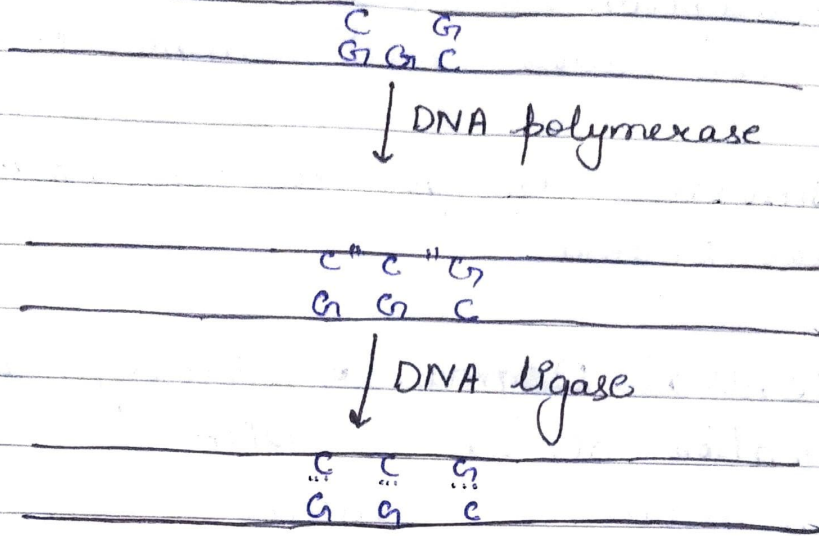 C G
G G C
DNA polymerase
C " C " G
G G C
DNA ligase
C C G
G G C